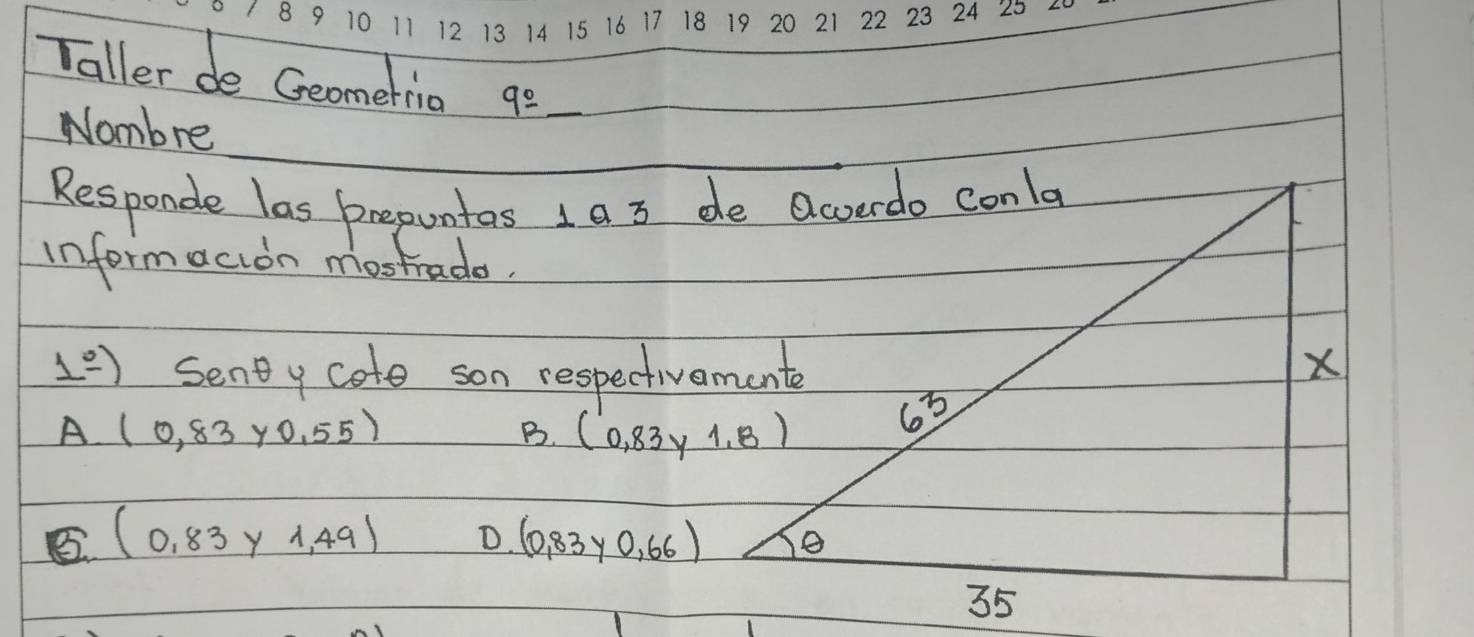 8 9 10 11 12 13 14 15 16 17 18 19 20 21 22 23 24 25
Taller de Geometria 9º __
Nombre ____________
Responde las preguntas 1 a 3 de acuerdo con la
información mostrada.
1º) Senθ y cotθ son respectivamente
X
63
A. (0,83 y 0,55) B. (0,83 y 1.8)
C. (0,83 y 1,49) D. (0,83 y 0,66)
θ
35